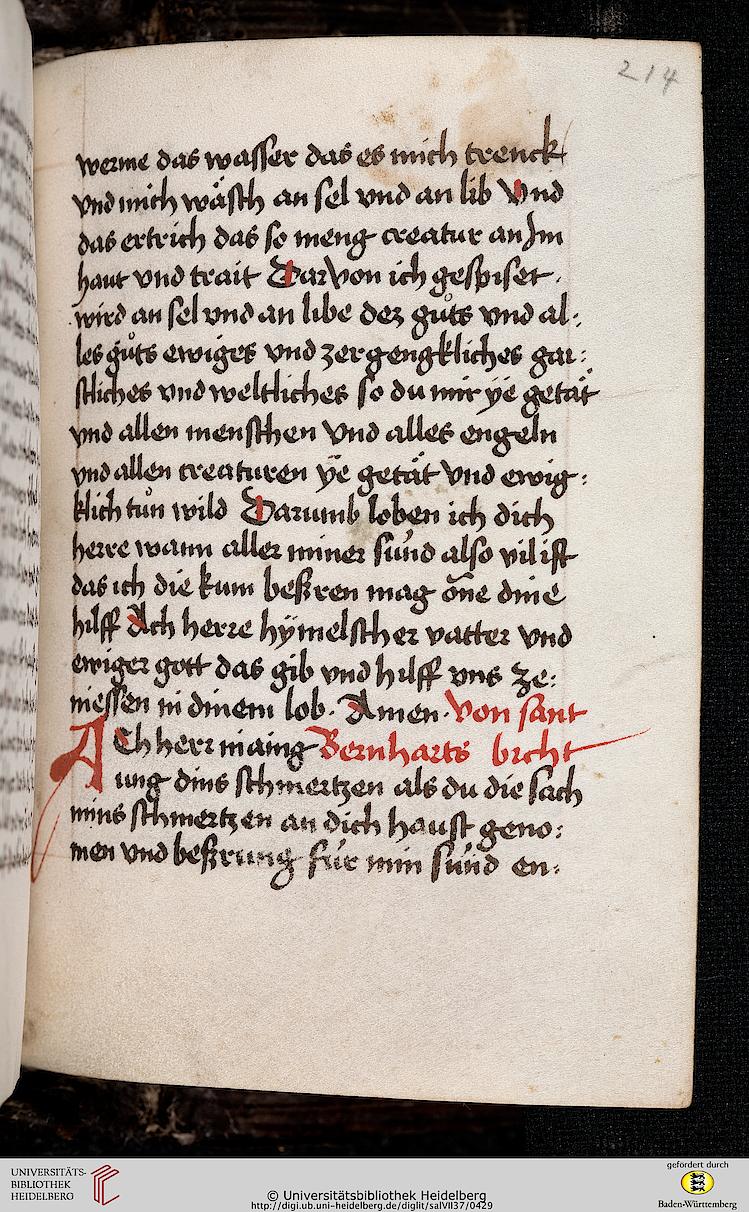 214
werme das wasser das es mich trenck
vnd mich wäsch an sel vnd an lib Vnd
das ertrich das so meng creatur an Jm
haut vnd trait Dar von ich gespiset
wird an sel vnd an libe dez gůts vnd al:
les gůts ewiges vnd zergengkliches gai:
stliches vnd weltliches so du mir ÿe getät
vnd allen menschen Vnd alles engeln
vnd allen creaturen ÿe getät Vnd ewig:
klich tůn wild Darumb loben ich dich
herre wann aller miner sünd also vil ist
das ich die kum beßren mag one dine
hilff Ach herre hÿmelscher vatter vnd
ewiger gott das gib vnd hilff vns ze:
niessen in dinem lob. Amen. Von sant
ACh herr in aing Bernharts bicht
ung dins schmertzen als du die sach
mins schmertzen an dich haust geno:
men vnd beßrung für min sünd en:
UNIVERSITÄTS-
BIBLIOTHEK
HEIDELBERG
© Universitätsbibliothek Heidelberg
http://digi.ub.uni-heidelberg.de/diglit/salVII37/0429
gefördert durch
Baden-Württemberg